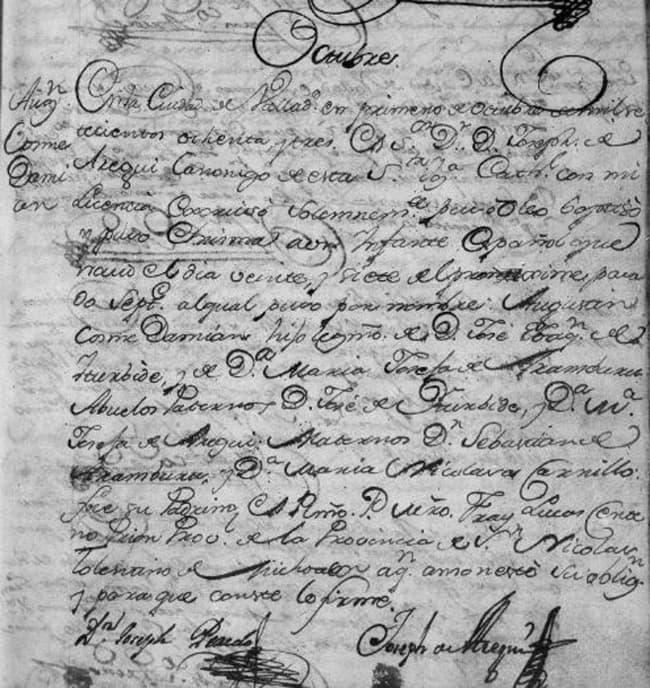 Octubre
Aug.n Cosme Dami an
En la Ciudad de Vallad. en primero de Octubre de mil se
tecientos ochenta, y tres. El S.or D.r D. Joseph. de
Aregui Canonigo de esta S.ta Ig.a Cath.l con mi
Licencia Exorcisó solemnem.te puso Oleo baptisó
y puso Chrisma a un Infante Español que
nació el dia veinte, y siete del proximo pasa
do Sept.e al qual puso por nombre. Augustin
Cosme Damian hijo legmo. de D. José Joaq.n de
Yturbide, y de D.a Maria Josefa de Aramburu
Abuelos Paternos D. José de Yturbide, y D.a M.a
Josefa de Aregui. Maternos D.n Sebastian de
Aramburu, y D.a Maria Nicolasa Carrillo.
fue su Padrino, El Rmo. P. Mro. Fray Lucas Cente
no Prior Prov. de la Provincia de S.n Nicolas
Tolentino de Michoacan a q.n amonesté su oblig.n
y para que conste lo firmé.
D.r Joseph Peredo Joseph de Aregui